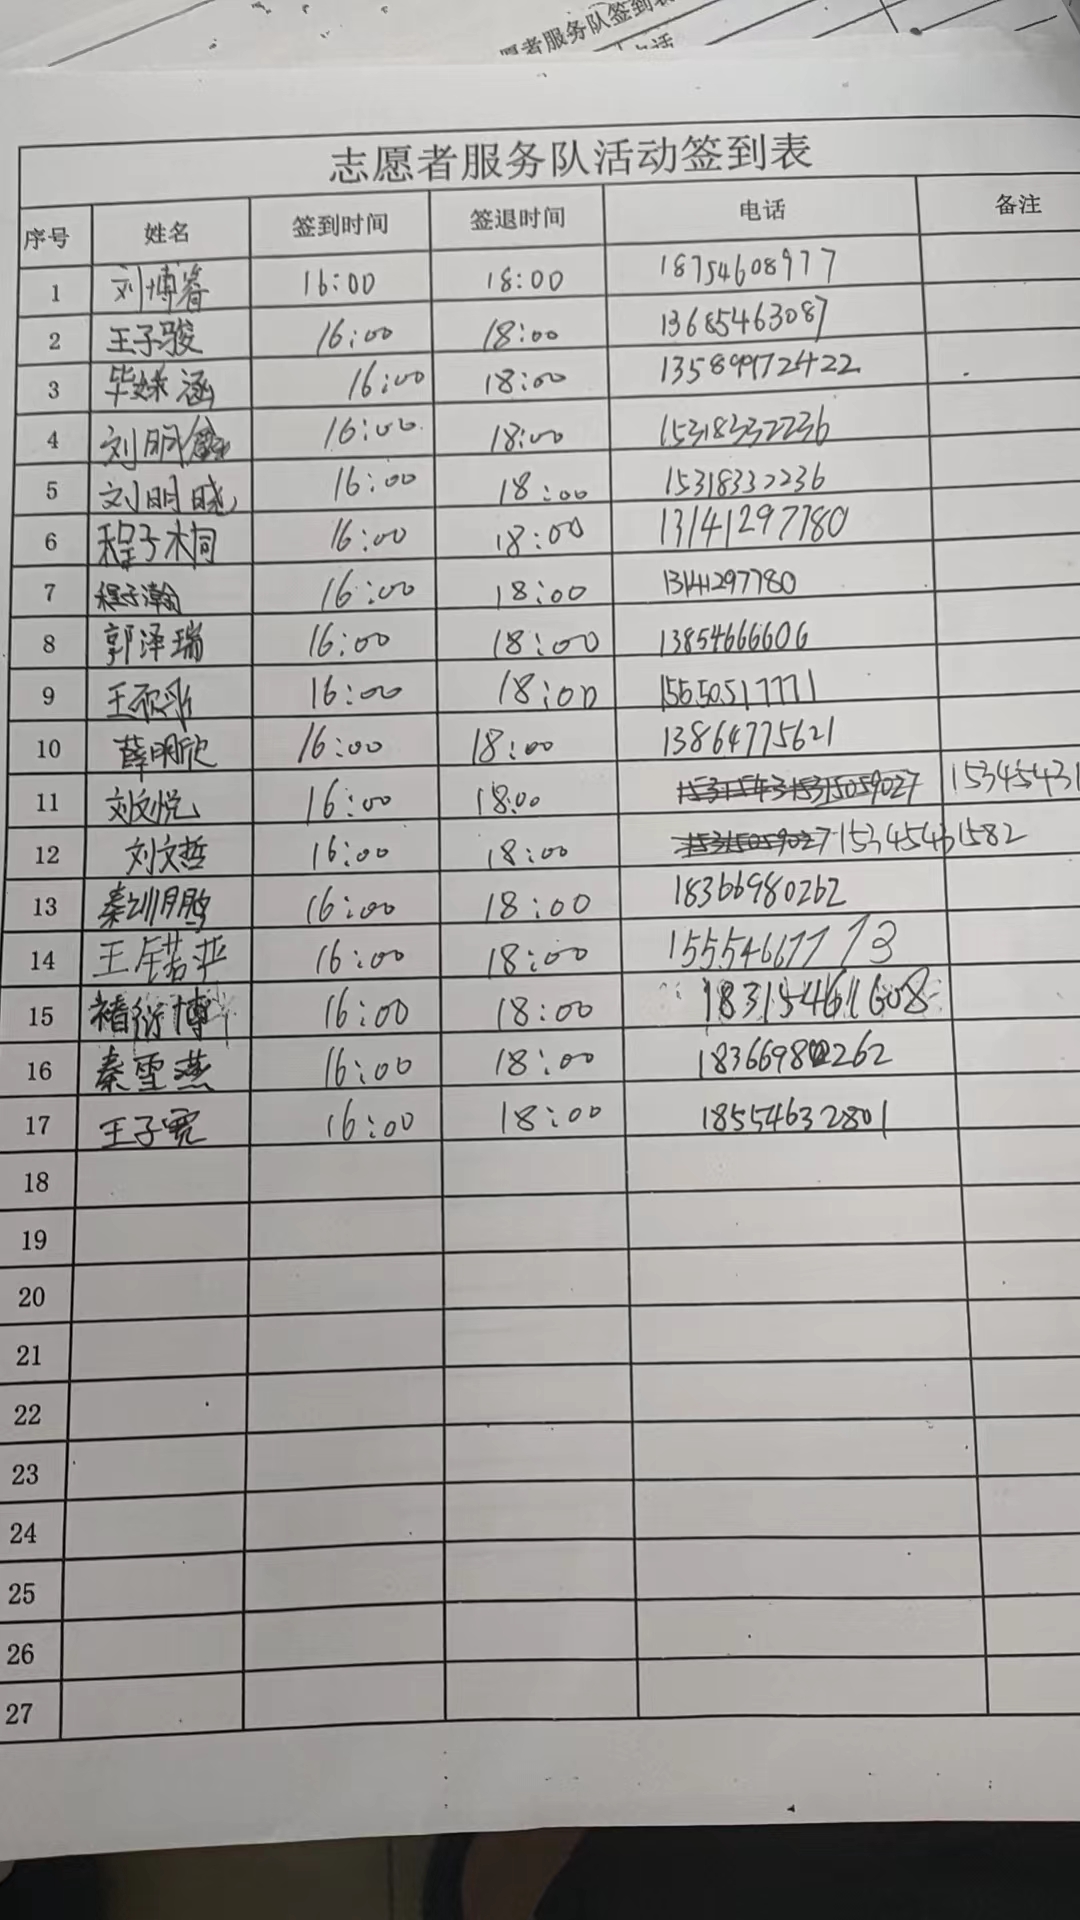 愿者服务队签到表
电话
志愿者服务队活动签到表
序号 姓名 签到时间 签退时间 电话 备注
1 刘博睿 16:00 18:00 18754608977
2 王子骏 16:00 18:00 13685463087
3 毕姝涵 16:00 18:00 13589972422
4 刘明 16:00 18:00 15318332236
5 刘明晓 16:00 18:00 15318332236
6 程子桐 16:00 18:00 13141297780
7 程子瀚 16:00 18:00 13141297780
8 郭泽瑞 16:00 18:00 13854666606
9 16:00 18:00 15650517771
10 薛明欣 16:00 18:00 13864775621
11 刘文悦 16:00 18:00 15345431
12 刘文哲 16:00 18:00 15345431582
13 秦训鹏 16:00 18:00 18366980262
14 16:00 18:00 15554617773
15 褚衍博 16:00 18:00 18315461608
16 秦雪燕 16:00 18:00 18366980262
17 王子霓 16:00 18:00 18554632801
18
19
20
21
22
23
24
25
26
27